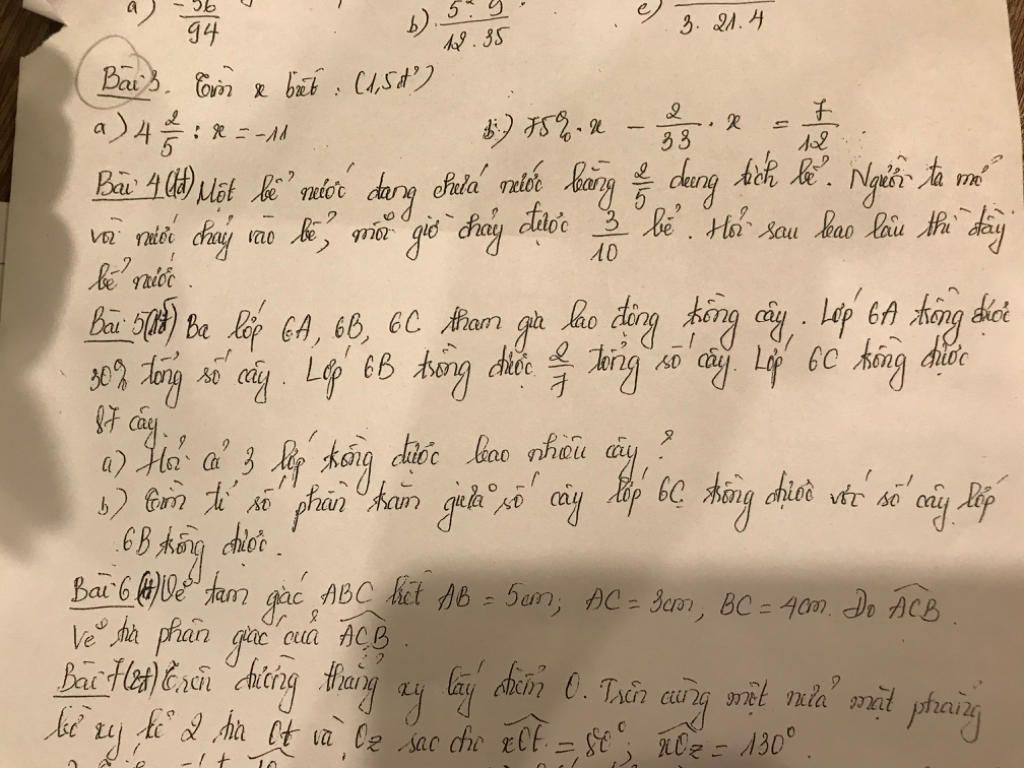 a) -56/94 b) 5.9/12.35 c) 3.21.4
Bài 3. Tìm x biết: (1,5đ)
a) 4 2/5 : x = -11 b) 75% . x - 2/33 . x = 7/12
Bài 4 (1đ) Một bể nước đang chứa nước bằng 2/5 dung tích bể. Người ta mở
vòi nước chảy vào bể, mỗi giờ chảy được 3/10 bể. Hỏi sau bao lâu thì đầy
bể nước.
Bài 5 Ba lớp 6A, 6B, 6C tham gia lao động trồng cây. Lớp 6A trồng được
30% tổng số cây. Lớp 6B trồng được 2/7 tổng số cây. Lớp 6C trồng được
87 cây.
a) Hỏi cả 3 lớp trồng được bao nhiêu cây?
b) Tìm tỉ số phần trăm giữa số cây lớp 6C trồng được với số cây lớp
6B trồng được.
Bài 6 Vẽ tam giác ABC biết AB = 5cm; AC = 3cm, BC = 4cm. Đo ACB.
Vẽ tia phân giác của ACB.
Bài 7 (2đ) Trên đường thẳng xy lấy điểm O. Trên cùng một nửa mặt phẳng
bờ xy kẻ 2 tia Ot và Oz sao cho xOt = 80°; xOz = 130°.